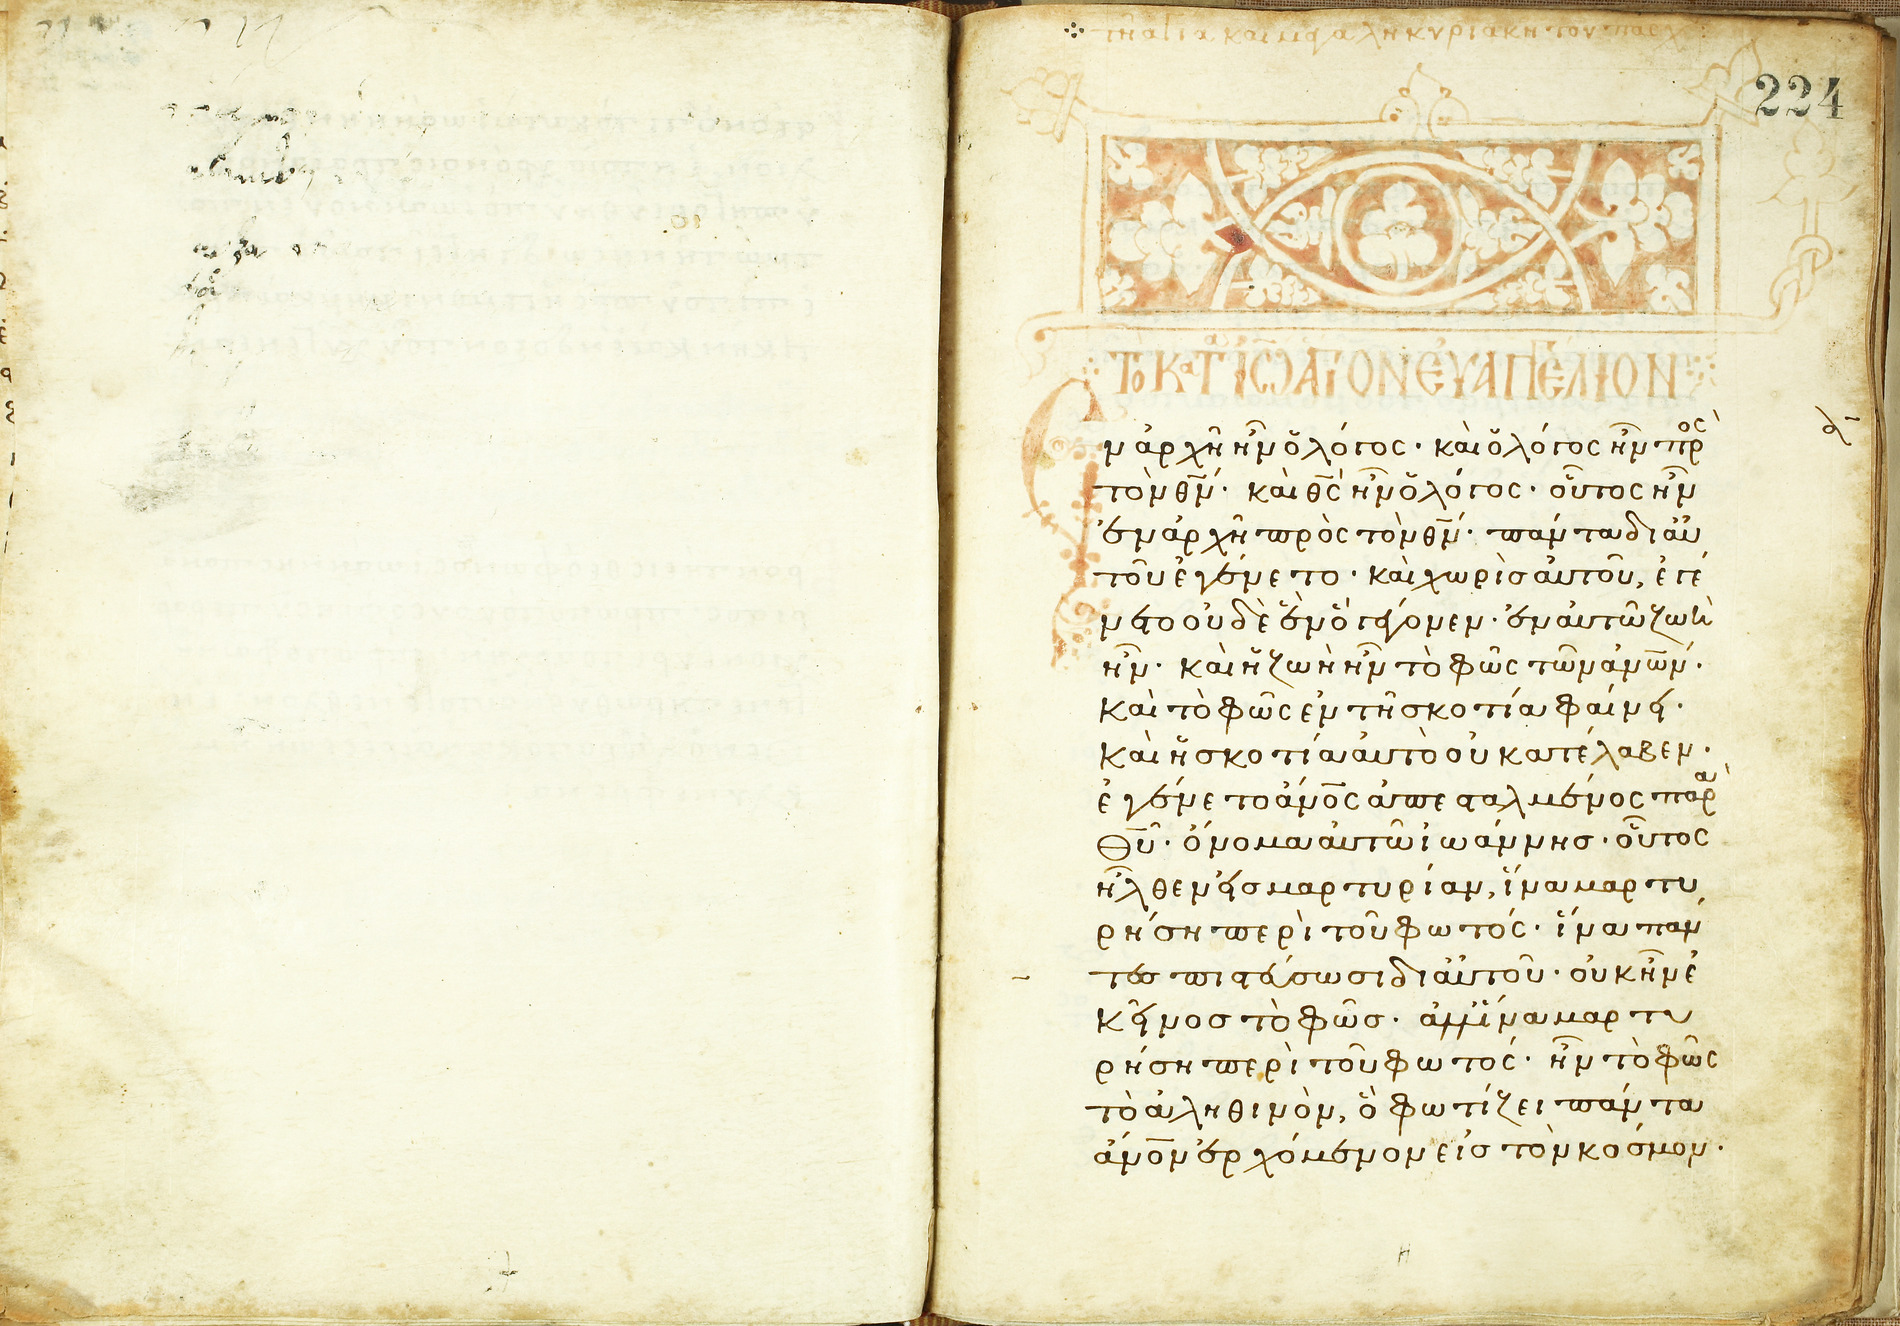 τῆ ἁγία καὶ μεγάλη κυριακῆ τοῦ πάσχ
224
Το ΚατΑ ΙΩ ΑΓΙΟΝ ΕΥΑΓΓΕΛΙΟΝ
Ἐν ἀρχῆ ἦν ὁ λόγος· καὶ ὁ λόγος ἦν πρὸς
τὸν θν· καὶ θς ἦν ὁ λόγος· οὗτος ἦν
ἐν ἀρχῆ πρὸς τὸν θν· πάντα δι αὐ
τοῦ ἐγένετο· καὶ χωρὶσ αὐτοῦ, ἐγέ
νετο οὐδὲ ἓν ὃ γέγονεν· ἐν αὐτῶ ζωὴ
ἦν· καὶ ἡ ζωὴ ἦν τὸ φῶς τῶν ἀνων·
καὶ τὸ φῶς ἐν τῆ σκοτία φαίνει·
καὶ ἡ σκοτία αὐτὸ οὐ κατέλαβεν·
ἐγένετο ἄνος ἀπεσταλμένος παρὰ
θυ· ὄνομα αὐτῶ ἰωάννησ· οὗτος
ἦλθεν εἰσ μαρτυρίαν, ἵνα μαρτυ
ρήση περὶ τοῦ φωτός· ἵνα πάν
τεσ πιστεύσωσι δι αὐτοῦ· οὐκ ἦν ἐ
κεῖνοσ τὸ φῶσ· ἀλλ' ἵνα μαρτυ
ρήση περὶ τοῦ φωτός· ἦν τὸ φῶς
τὸ ἀληθινὸν, ὃ φωτίζει πάντα
ἄνον ἐρχόμενον εἰσ τὸν κόσμον·